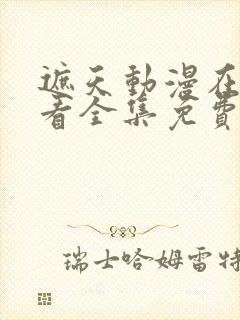 遮天動漫在
看全集免費
瑞士哈姆雷特